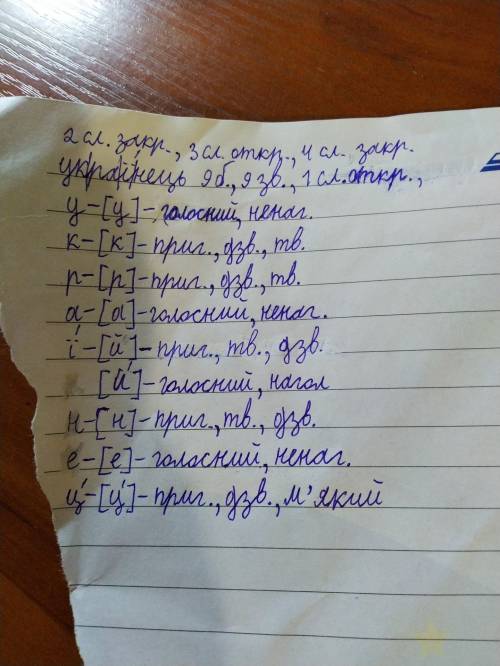 2 сл. закр., 3 сл. откр., 4 сл. закр.
укра|ї́|нець 9 б., 9 зв., 1 сл. откр.,
у-[у]-голосний, ненаг.
к-[к]-приг., дзв., тв.
р-[р]-приг., дзв., тв.
а-[а]-голосний, ненаг.
ї́-[й]-приг., тв., дзв.
[и́]-голосний, нагол
н-[н]-приг., тв., дзв.
е-[е]-голосний, ненаг.
ц́-[ц́]-приг., дзв., м'який